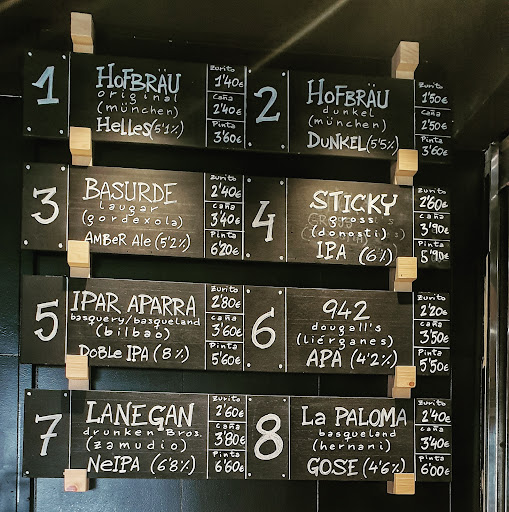 1
HOFBRÄU
original
(münchen)
Helles (5'1%)
Zurito
1'40€
caña
2'40€
Pinta
3'60€
2
HOFBRÄU
dunkel
(münchen)
DUNKEL (5'5%)
Zurito
1'50€
caña
2'50€
Pinta
3'60€
3
BASURDE
laugar
(gordexola)
AMBeR Ale (5'2%)
Zurito
2'40€
caña
3'40€
Pinta
6'20€
4
STICKY
gross
(donosti)
IPA (6%)
Zurito
2'60€
caña
3'90€
Pinta
5'90€
5
IPAR APARRA
basquery/basqueland
(bilbao)
DoBLe IPA (8%)
Zurito
2'80€
caña
3'60€
Pinta
5'60€
6
942
dougall's
(liérganes)
APA (4'2%)
Zurito
2'20€
caña
3'50€
Pinta
5'50€
7
LANEGAN
drunken Bros.
(zamudio)
NeIPA (6'8%)
Zurito
2'60€
caña
3'80€
Pinta
6'60€
8
La PALOMA
basqueland
(hernani)
GOSE (4'6%)
Zurito
2'40€
caña
3'40€
Pinta
6'00€